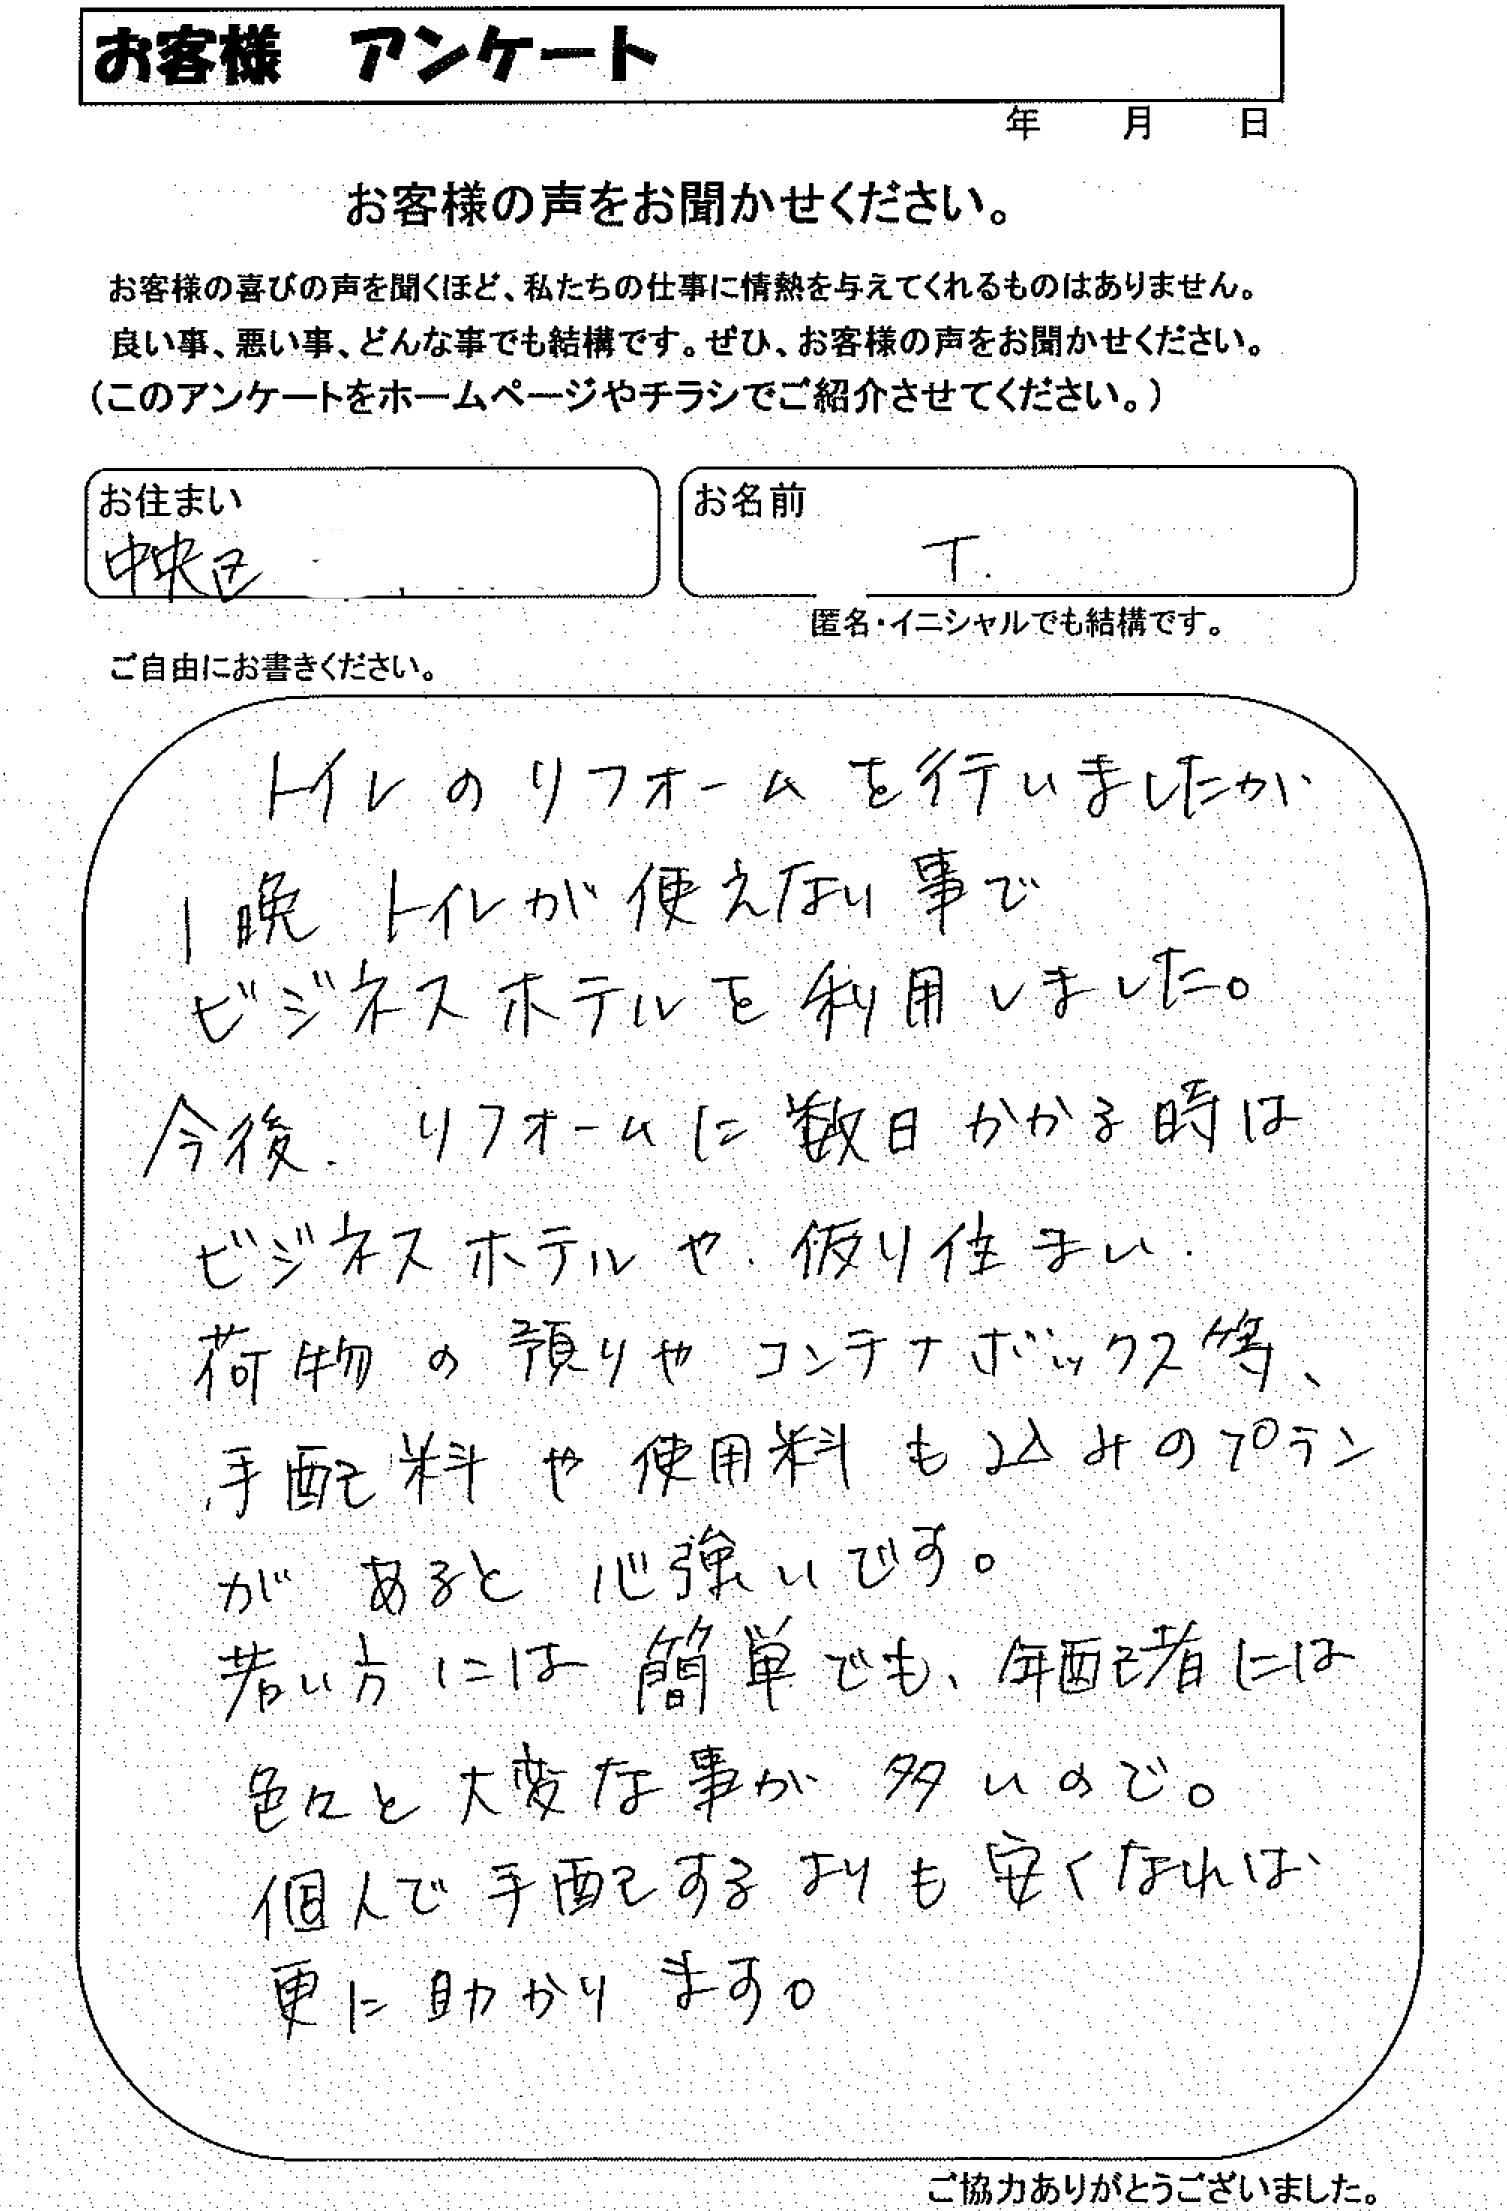 お客様 アンケート
年 月 日
お客様の声をお聞かせください。
お客様の喜びの声を聞くほど、私たちの仕事に情熱を与えてくれるものはありません。
良い事、悪い事、どんな事でも結構です。ぜひ、お客様の声をお聞かせください。
(このアンケートをホームページやチラシでご紹介させてください。)
お住まい
中央区
お名前
T.
匿名・イニシャルでも結構です。
ご自由にお書きください。
トイレのリフォームを行いましたが
1晩 トイレが使えない事で
ビジネスホテルを利用しました。
今後、リフォームに数日かかる時は
ビジネスホテルや、仮り住まい、
荷物の預りやコンテナボックス等、
手配料や使用料も込みのプラン
があると心強いです。
若い方には簡単でも、年配者には
色々と大変な事が多いので。
個人で手配するよりも安くなれば
更に助かります。
ご協力ありがとうございました。